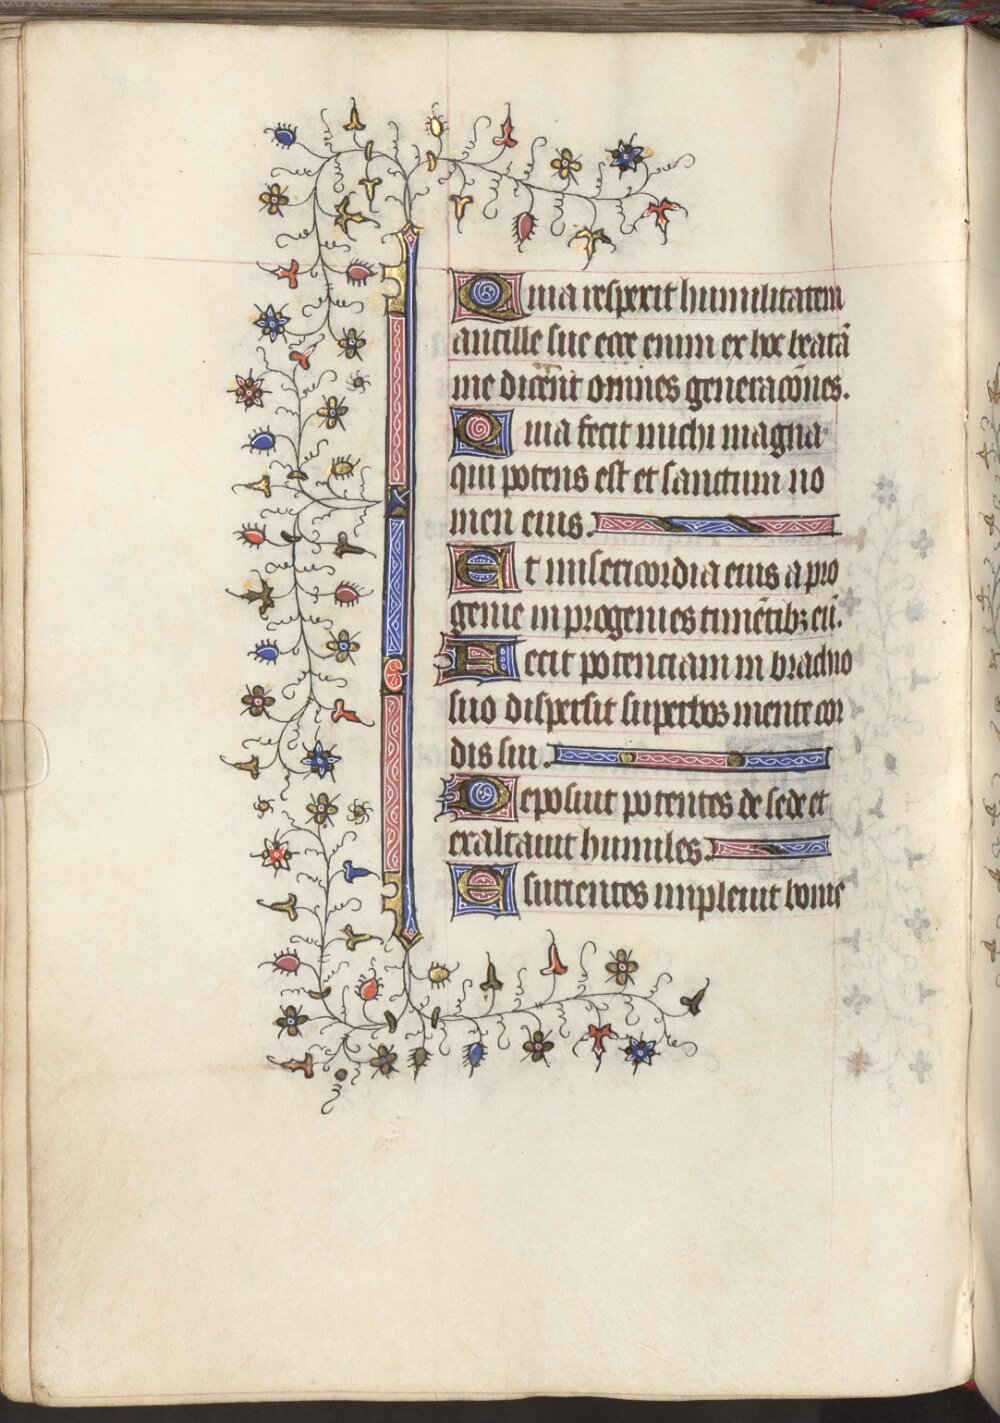 Quia respexit humilitatem
ancille sue ecce enim ex hoc beatā
me dicent omnes generacōnes.
Quia fecit michi magna
qui potens est et sanctum no
men eius.
Et misericordia eius a pro
genie in progenies timētibꝫ eū.
Fecit potenciam in brachio
suo dispersit superbos mente cor
dis sui.
Deposuit potentes de sede et
exaltauit humiles.
Esurientes impleuit bonis